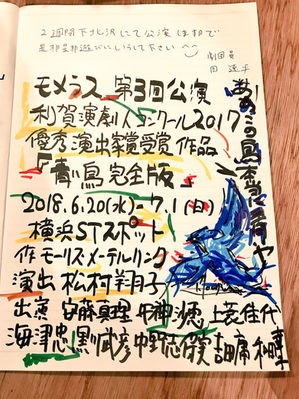 2週間下北沢にて公演してますので
是非是非遊びにいらして下さい
劇団員
田
モメラス 第3回公演
利賀演劇人コンクール2017
優秀演出家賞受賞作品
「青い鳥 完全版」
2018.6.20(水)~7.1(日)
横浜STスポット
作 モーリス・メーテルリンク
演出 松村翔子
出演 安藤真理 上蓑佳代
海津忠 黒川武彦 中野志保実
あっこの鳥本当に青いや